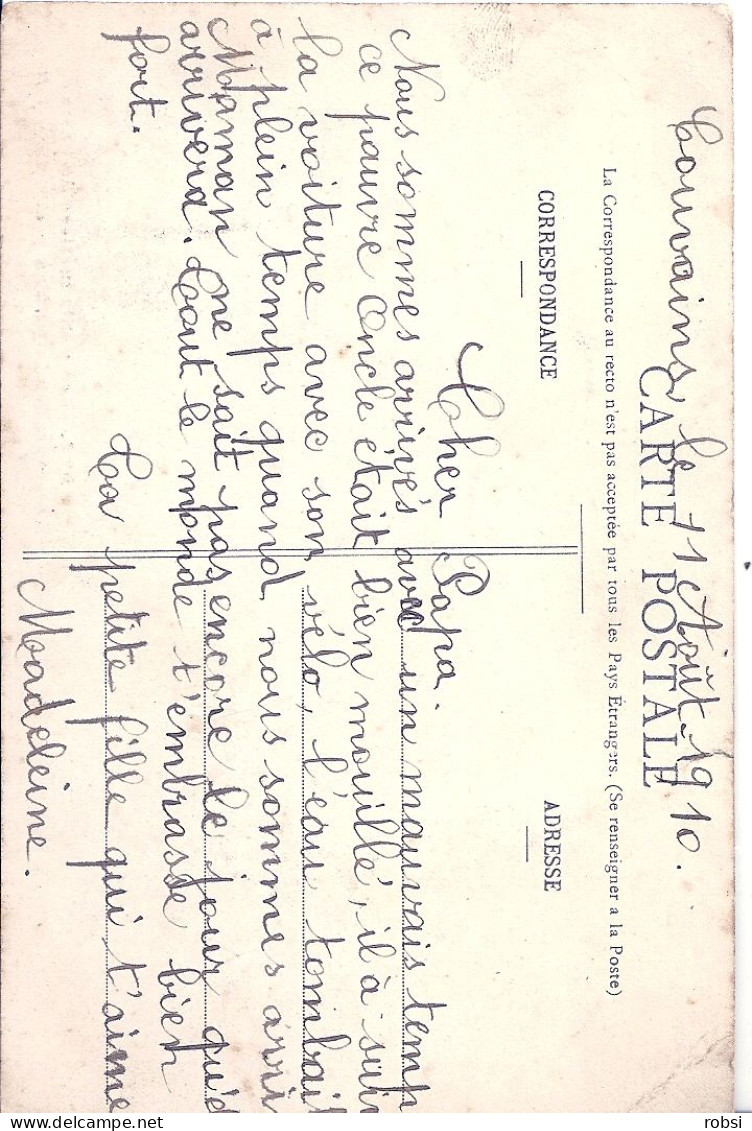 Couvains, le 11 Août 1910.
CARTE POSTALE
La Correspondance au recto n'est pas acceptée par tous les Pays Étrangers. (Se renseigner a la Poste)
CORRESPONDANCE
ADRESSE
Cher Papa.
Nous sommes arrivés avec un mauvais temp
ce pauvre Oncle était bien mouillé, il à suivi
la voiture avec son vélo, l'eau tombait
à plein temps quand nous sommes arri
Maman ne sait pas encore le jour qu'e
arrivera. Tout le monde t'embrasse bien
fort.
Ta petite fille qui t'aime
Madeleine.
robsi